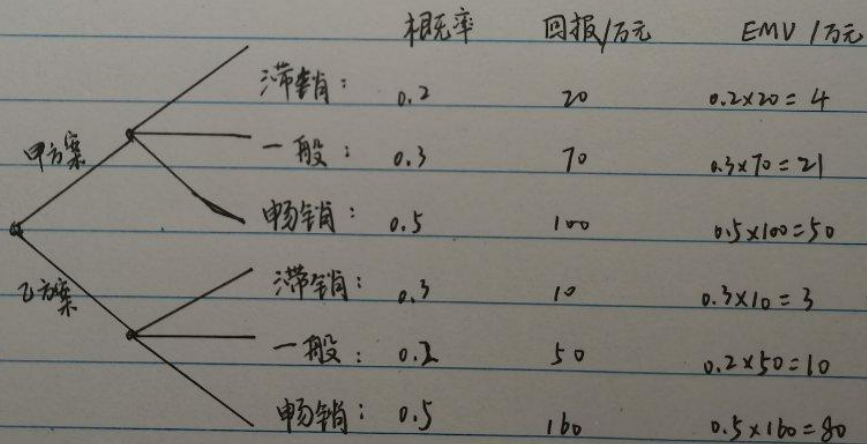 概率 回报/万元 EMV/万元
滞销: 0.2 20 0.2×20=4
甲方案
一般: 0.3 70 0.3×70=21
畅销: 0.5 100 0.5×100=50
乙方案
滞销: 0.3 10 0.3×10=3
一般: 0.2 50 0.2×50=10
畅销: 0.5 160 0.5×160=80